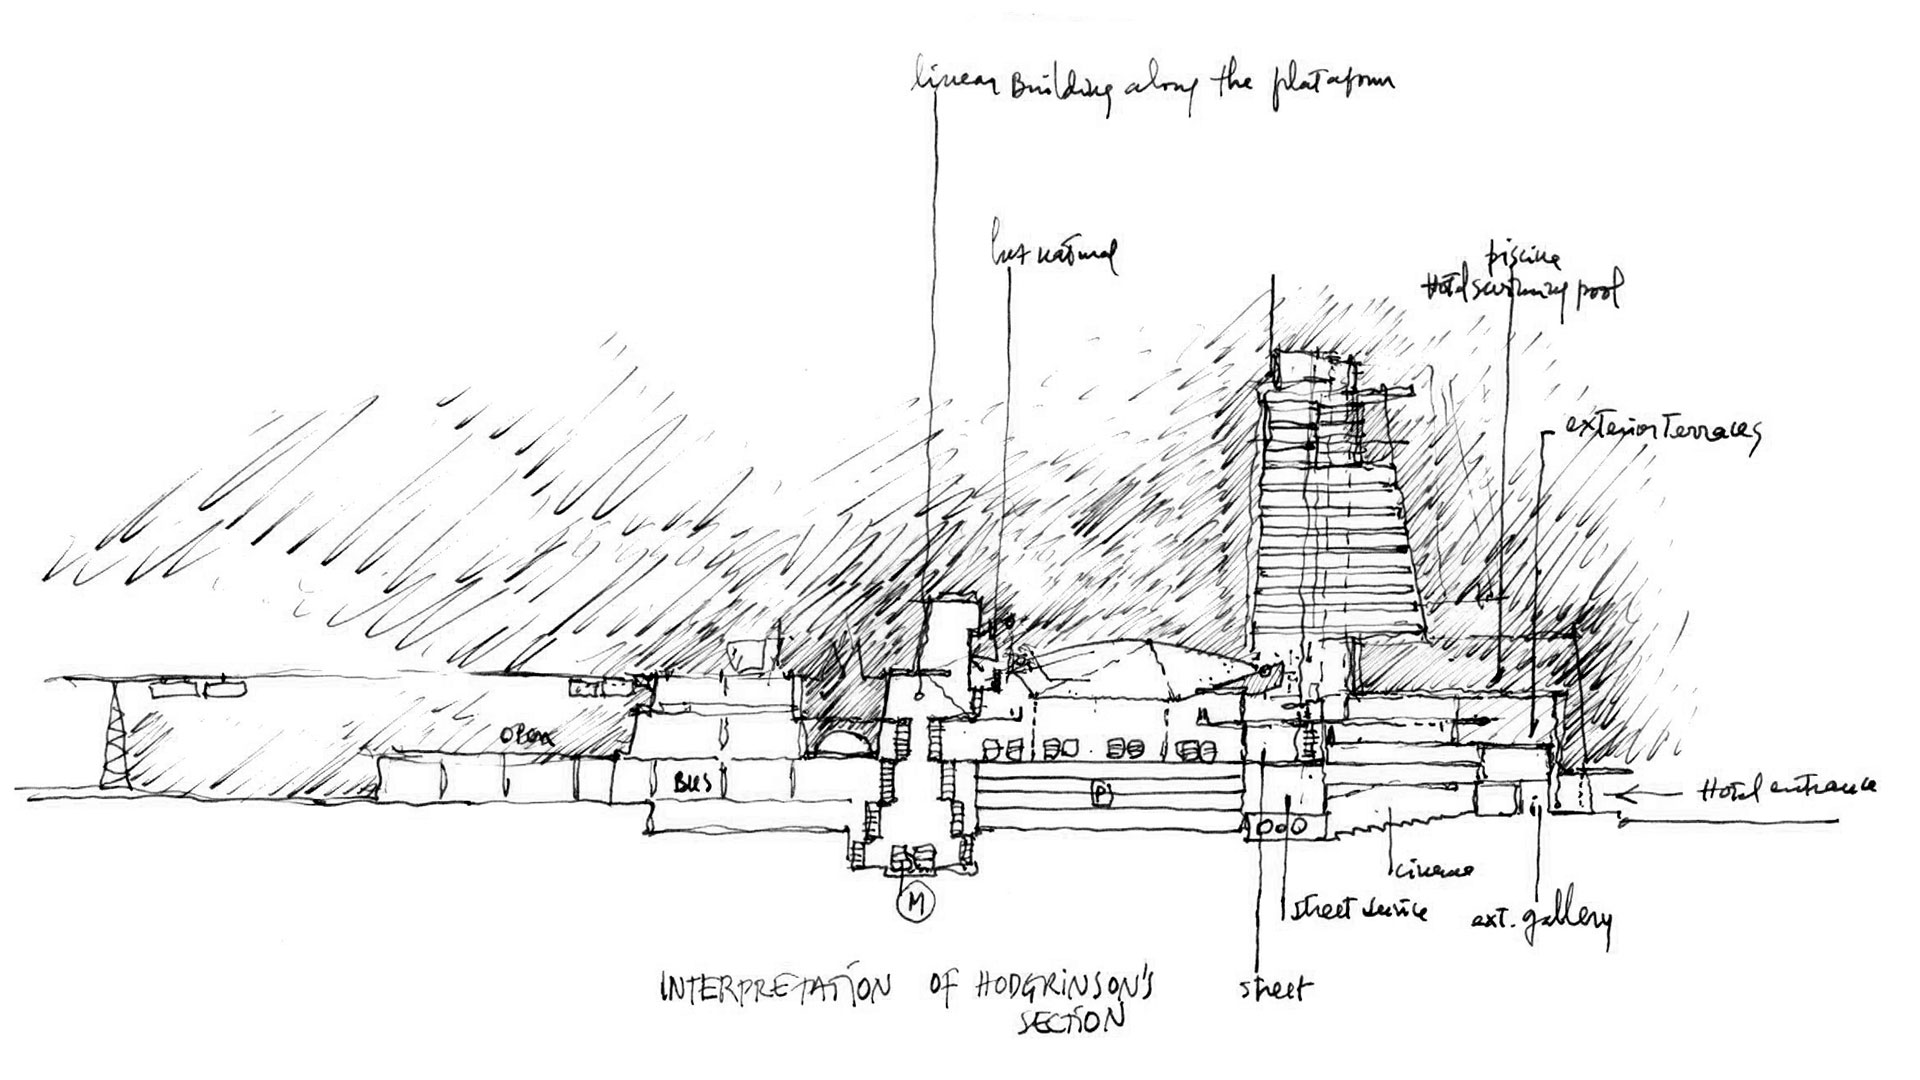 linear Building along the plataform
luz natural
piscina
Hotel swimming pool
exterior terraces
open
BUS
P
Hotel entrance
cinema
M
street service
ext. gallery
INTERPRETATION OF HODGRINSON'S
SECTION
street